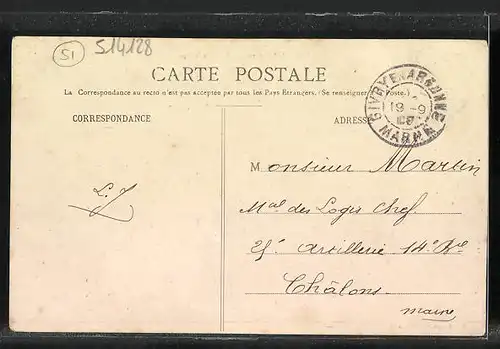 51 514128
CARTE POSTALE
La Correspondance au recto n'est pas acceptée par tous les Pays Étrangers. (Se renseigner à la Poste).
CORRESPONDANCE
ADRESSE
GIVRY-EN-ARGONNE
19 -9
MARNE
Monsieur Martin
L.J
Mal des Logis Chef
25e Artillerie 14e Bie
Châlons
Marne